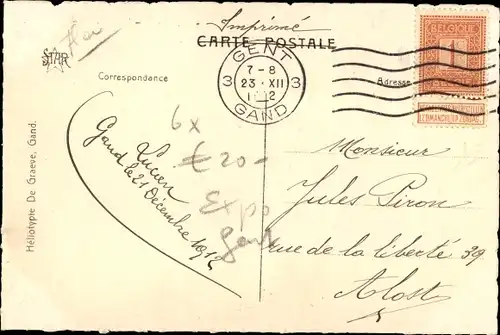 Imprimé
CARTE POSTALE
STAR
Correspondance
Adresse
GENT
3 3
7-8
23 · XII
GAND
BELGIQUE
1
Héliotypie De Graeve, Gand.
Lucien
Gand le 21 Décembre 1912
6x
€ 20-
Expo
Gent
Monsieur
Jules Piron
rue de la liberté 39
Alost